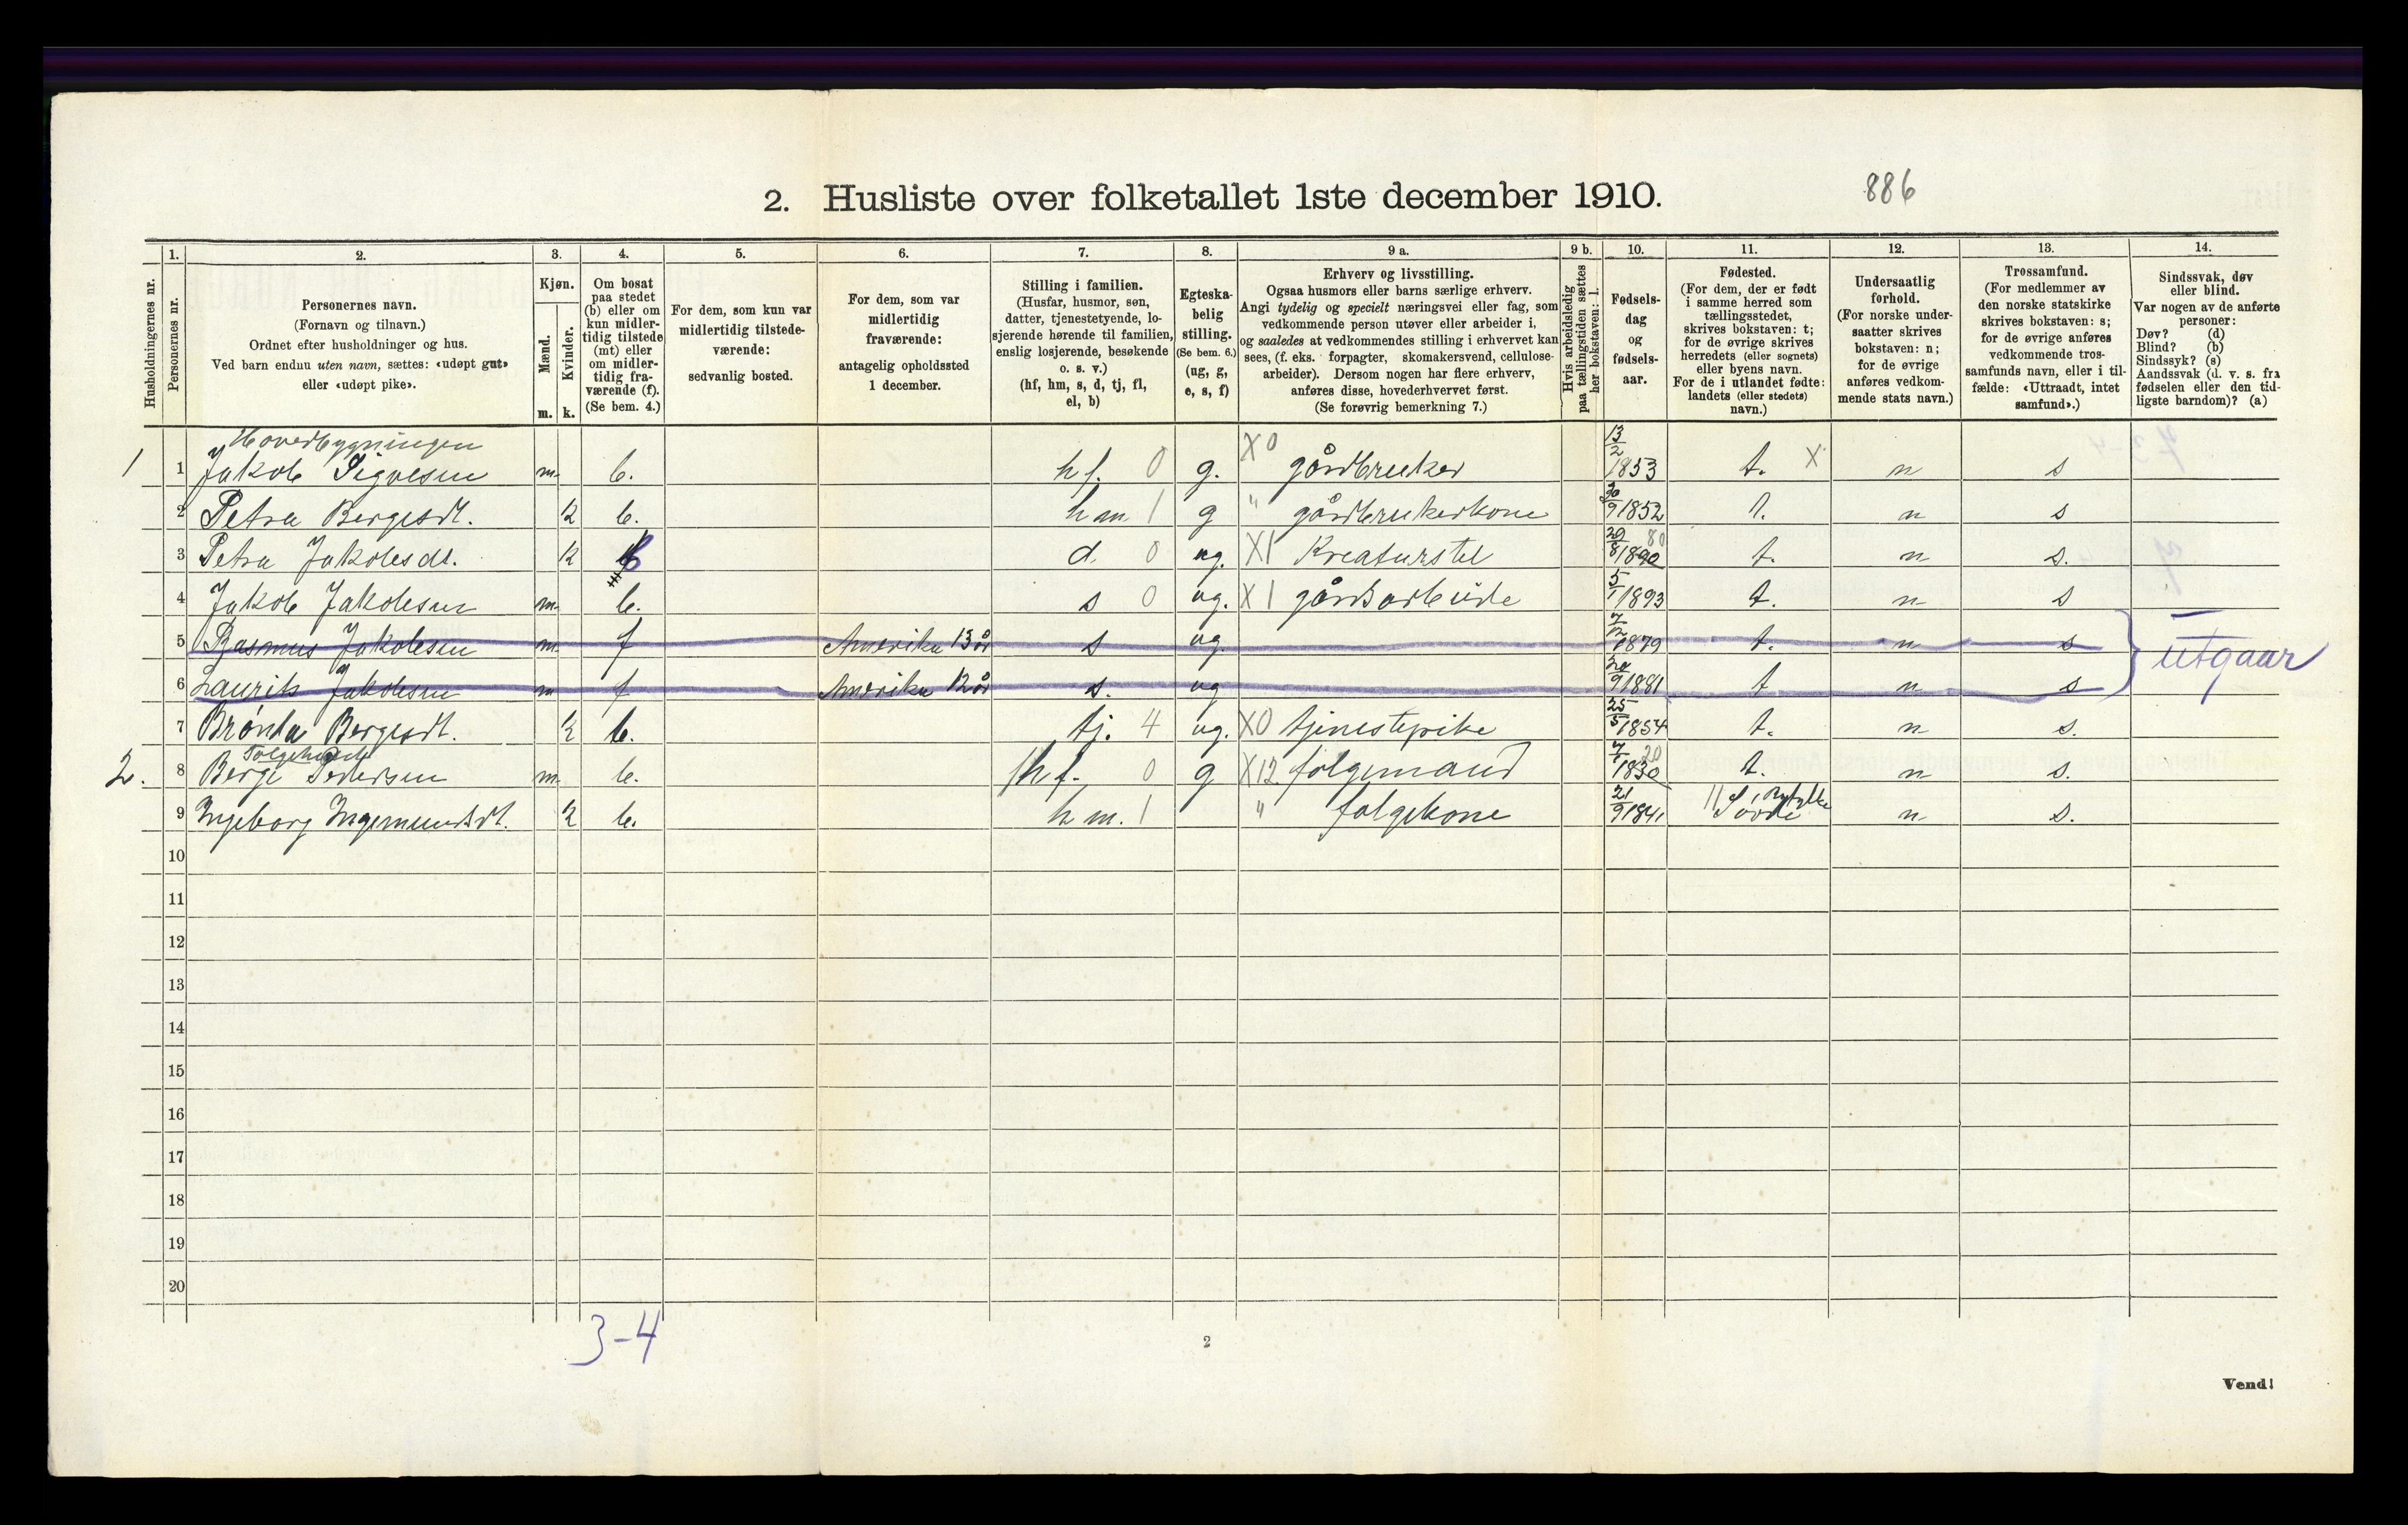 2. Husliste over folketallet 1ste december 1910. 886
Husholdningernes nr.
1. Personernes nr.
2. Personernes navn.
(Fornavn og tilnavn.)
Ordnet efter husholdninger og hus.
Ved barn endnu uten navn, sættes: «udøpt gut»
eller «udøpt pike».
3. Kjøn.
Mænd. m.
Kvinder. k.
4. Om bosat
paa stedet
(b) eller om
kun midler-
tidig tilstede
(mt) eller
om midler-
tidig fra-
værende (f).
(Se bem. 4.)
5. For dem, som kun var
midlertidig tilstede-
værende:
sedvanlig bosted.
6. For dem, som var
midlertidig
fraværende:
antagelig opholdssted
1 december.
7. Stilling i familien.
(Husfar, husmor, søn,
datter, tjenestetyende, lo-
sjerende hørende til familien,
enslig losjerende, besøkende
o. s. v.)
(hf, hm, s, d, tj, fl,
el, b)
8. Egteska-
belig
stilling.
(Se bem. 6.)
(ug, g,
e, s, f)
9 a. Erhverv og livsstilling.
Ogsaa husmors eller barns særlige erhverv.
Angi tydelig og specielt næringsvei eller fag, som
vedkommende person utøver eller arbeider i,
og saaledes at vedkommendes stilling i erhvervet kan
sees, (f. eks. forpagter, skomakersvend, cellulose-
arbeider). Dersom nogen har flere erhverv,
anføres disse, hovederhvervet først.
(Se forøvrig bemerkning 7.)
9 b. Hvis arbeidsledig
paa tællingstiden sættes
her bokstaven: l.
10. Fødsels-
dag
og
fødsels-
aar.
11. Fødested.
(For dem, der er født
i samme herred som
tællingsstedet,
skrives bokstaven: t;
for de øvrige skrives
herredets (eller sognets)
eller byens navn.
For de i utlandet fødte:
landets (eller stedets)
navn.)
12. Undersaatlig
forhold.
(For norske under-
saatter skrives
bokstaven: n;
for de øvrige
anføres vedkom-
mende stats navn.)
13. Trossamfund.
(For medlemmer av
den norske statskirke
skrives bokstaven: s;
for de øvrige anføres
vedkommende tros-
samfunds navn, eller i til-
fælde: «Uttraadt, intet
samfund».)
14. Sindssvak, døv
eller blind.
Var nogen av de anførte
personer:
Døv? (d)
Blind? (b)
Sindssyk? (s)
Aandssvak (d. v. s. fra
fødselen eller den tid-
ligste barndom)? (a)
Hovedbygningen
1 1 Jakob Sigvesen m. b. hf. 0 g. X0 gårdbruker 13/2 1853 t. X n s
2 Petra Bergesdt. k b. hm. 1 g " gårdbrukerkone 30/9 1852 t. n s
3 Petra Jakobsdt. k b d. 0 ug. X1 Kreaturstel 29/8 1890 80 t. n s.
4 Jakob Jakobsen m. b. s 0 ug. X1 gårdsarbeide 5/1 1893 t. n s
5 Rasmus Jakobsen m f Amerika 13 år s ug. 7/12 1879 t. n s
utgaar
6 Laurits Jakobsen m f Amerika 12 år s. ug 20/9 1881 t n s
7 Brønla Bergesdt. k b. tj. 4 ug. X0 tjenestepike 25/5 1854 t. n s.
Folgehuset
2. 8 Berge Pedersen m. b. hf. 0 g X12 folgemand 7/7 1830 20 t. n s.
9 Ingeborg Ingemundsdt. k b. hm. 1 " folgekone 21/9 1841 Søvde i Ryfylke n s.
10
11
12
13
14
15
16
17
18
19
20
3-4
2
Vend!